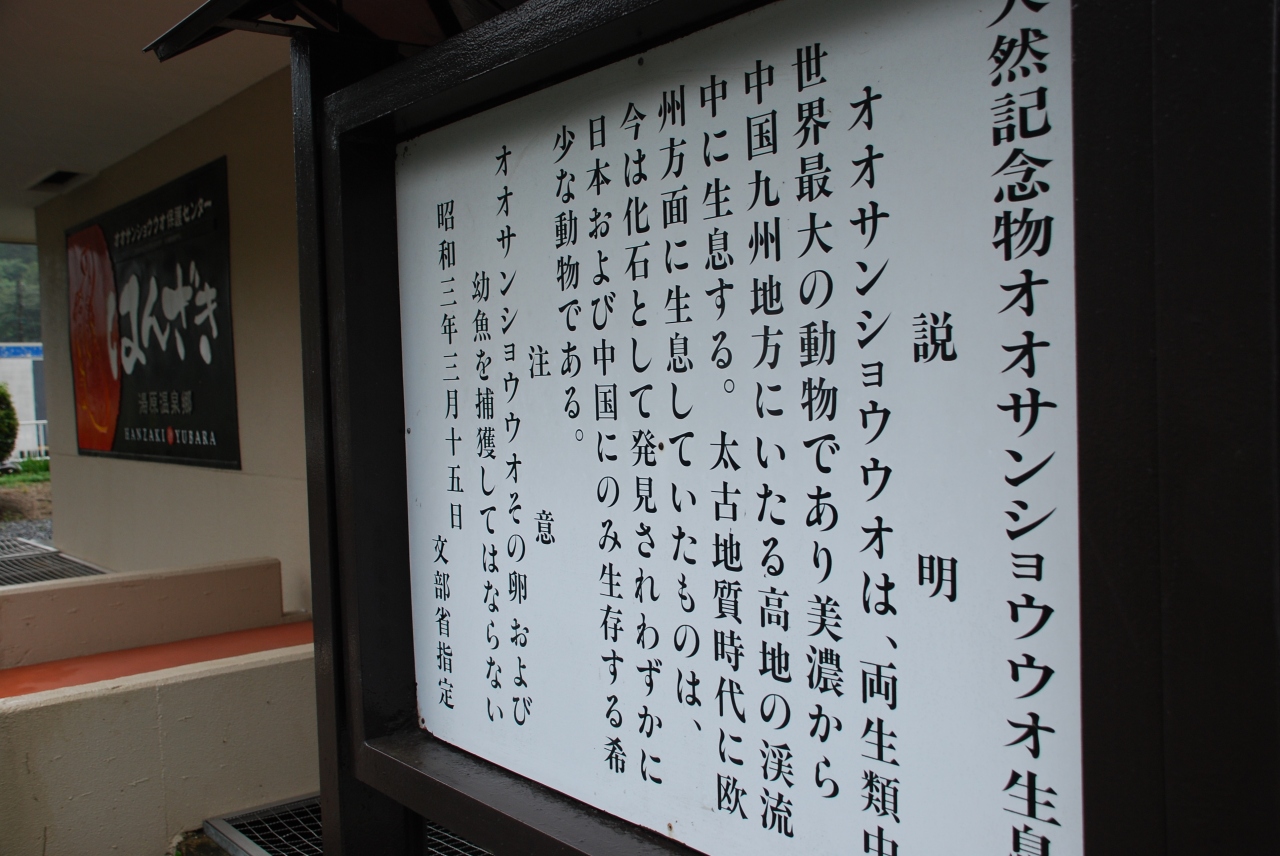 天然記念物オオサンショウウオ生息
説明
オオサンショウウオは、両生類中
世界最大の動物であり美濃から
中国九州地方にいたる高地の渓流
中に生息する。太古地質時代に欧
州方面に生息していたものは、
今は化石として発見されわずかに
日本および中国にのみ生存する希
少な動物である。
注意
オオサンショウウオその卵および
幼魚を捕獲してはならない
昭和三年三月十五日 文部省指定
オオサンショウウオ保護センター
はんざき
湯原温泉郷
HANZAKI YUBARA